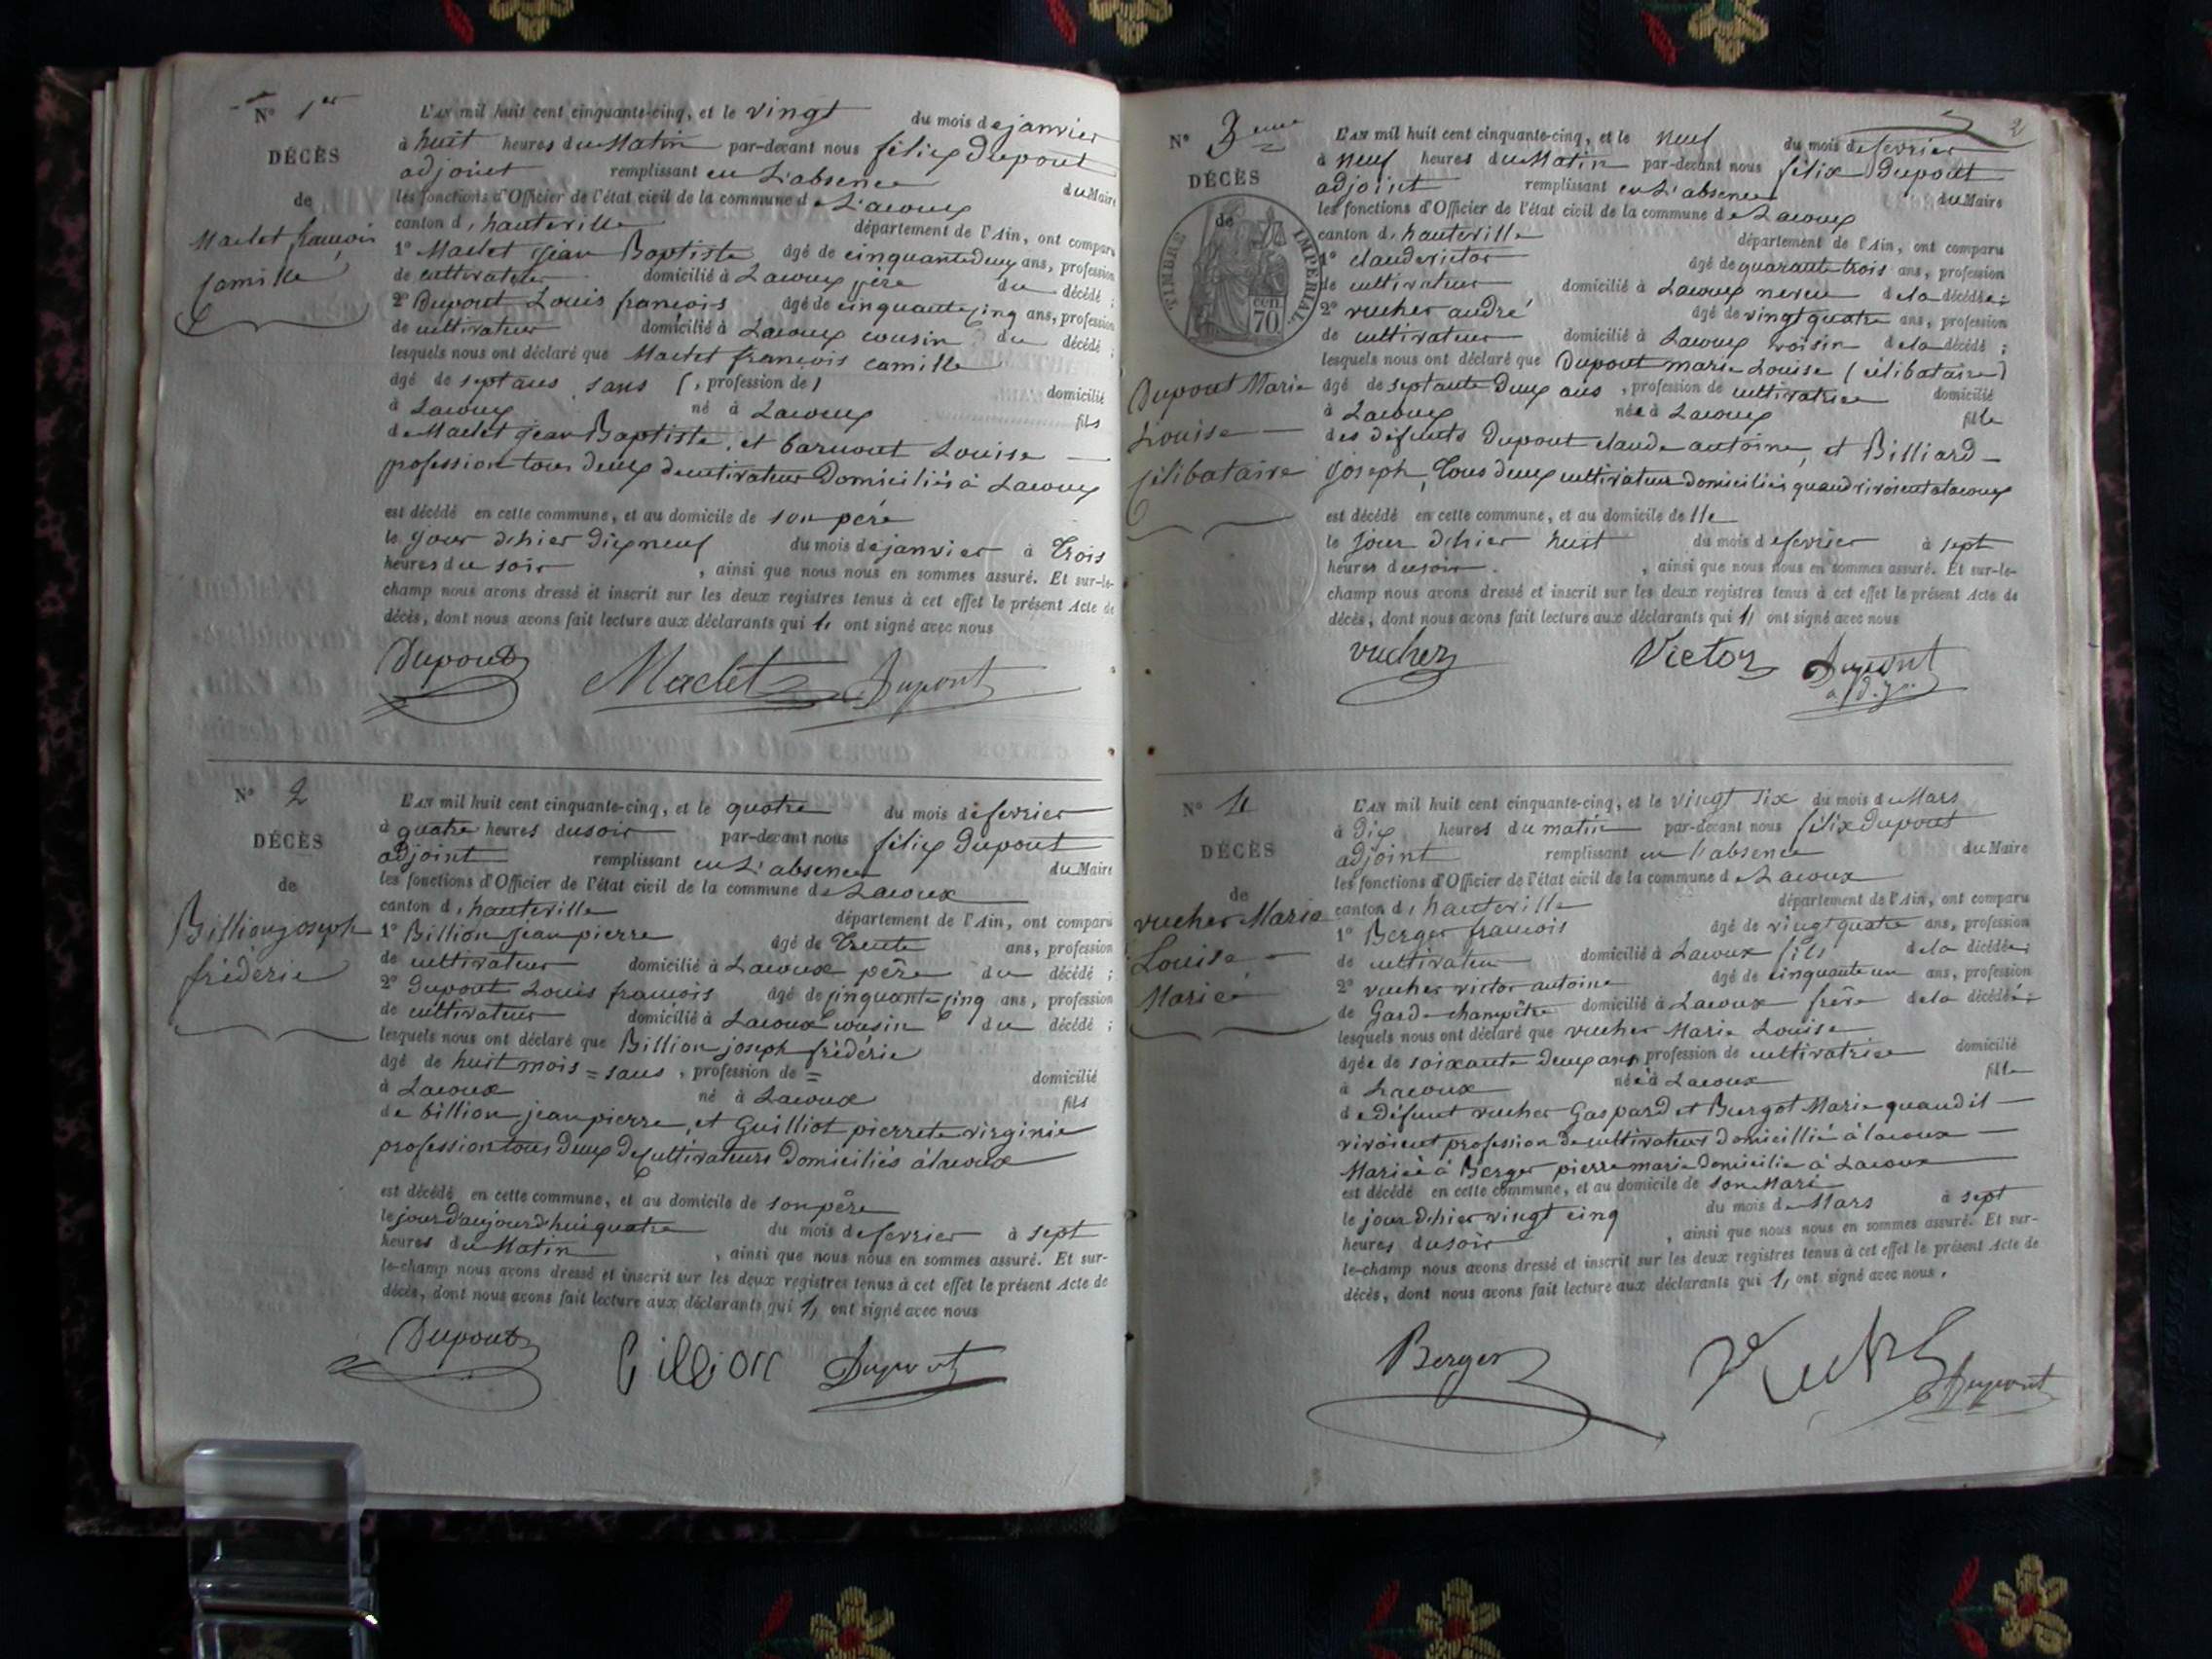 N° 1er
DÉCÈS
de
Maclet françois
Camille
L'AN mil huit cent cinquante-cinq, et le vingt du mois de janvier
à huit heures du Matin par-devant nous félix Dupont
adjoint remplissant en L'absence du Maire
les fonctions d'Officier de l'état civil de la commune de Lacoux
canton d'hauteville département de l'Ain, ont comparu
1° Maclet jean Baptiste âgé de cinquante deux ans, profession
de cultivateur domicilié à Lacoux père du décédé ;
2° Dupont Louis francois âgé de cinquante cinq ans, profession
de cultivateur domicilié à Lacoux cousin du décédé ;
lesquels nous ont déclaré que Maclet françois camille
âgé de sept ans sans (, profession de ) domicilié
à Lacoux né à Lacoux fils
de Maclet jean Baptiste, et barnout Louise
profession tous deux de cultivateur Domiciliés à Lacoux
est décédé en cette commune, et au domicile de son père
le jour d'hier dix neuf du mois de janvier à trois
heures du soir , ainsi que nous nous en sommes assuré. Et sur-le-
champ nous avons dressé et inscrit sur les deux registres tenus à cet effet le présent Acte de
décès, dont nous avons fait lecture aux déclarants qui ils ont signé avec nous
Dupont Maclet Dupont
N° 2
DÉCÈS
de
Billion joseph
fréderic
L'AN mil huit cent cinquante-cinq, et le quatre du mois de fevrier
à quatre heures du soir par-devant nous félix Dupont
adjoint remplissant en L'absence du Maire
les fonctions d'Officier de l'état civil de la commune de Lacoux
canton d'hauteville département de l'Ain, ont comparu
1° Billion jean pierre âgé de Trente ans, profession
de cultivateur domicilié à Lacoux père du décédé ;
2° Dupont Louis francois âgé de cinquante cinq ans, profession
de cultivateur domicilié à Lacoux cousin du décédé ;
lesquels nous ont déclaré que Billion joseph fréderic
âgé de huit mois = sans , profession de = domicilié
à Lacoux né à Lacoux fils
de billion jean pierre, et Guilliot pierrete virginie
profession tous deux de cultivateurs domiciliés à lacoux
est décédé en cette commune, et au domicile de son père
le jour d'aujourdhui quatre du mois de fevrier à sept
heures du Matin , ainsi que nous nous en sommes assuré. Et sur-
le-champ nous avons dressé et inscrit sur les deux registres tenus à cet effet le présent Acte de
décès, dont nous avons fait lecture aux déclarants qui ils ont signé avec nous
Dupont billion Dupont
2
N° 3eme
DÉCÈS
de
TIMBRE IMPERIAL
cen 70
Dupont Marie
Louise
célibataire
L'AN mil huit cent cinquante-cinq, et le neuf du mois de fevrier
à neuf heures du Matin par-devant nous félix Dupont
adjoint remplissant en L'absence du Maire
les fonctions d'Officier de l'état civil de la commune de Lacoux
canton d'hauteville département de l'Ain, ont comparu
1° claude victor âgé de quarante trois ans, profession
de cultivateur domicilié à Lacoux neveu de la décédée ;
2° vucher andré âgé de vingt quatre ans, profession
de cultivateur domicilié à Lacoux voisin de la décédé ;
lesquels nous ont déclaré que Dupont marie Louise (célibataire)
âgé de septante deux ans , profession de cultivatrice domicilié
à Lacoux née à Lacoux fille
des défunts Dupont claude antoine, et Billiard
joseph, Tous deux cultivateur domiciliés quand vivoient a lacoux
est décédé en cette commune, et au domicile delle
le jour d'hier huit du mois de fevrier à sept
heures du soir , ainsi que nous nous en sommes assuré. Et sur-le-
champ nous avons dressé et inscrit sur les deux registres tenus à cet effet le présent Acte de
décès, dont nous avons fait lecture aux déclarants qui ils ont signé avec nous
vucher Victor Dupont
adj.
N° 4
DÉCÈS
de
vucher Marie
Louise
Mariée
L'AN mil huit cent cinquante-cinq, et le vingt six du mois de Mars
à dix heures du matin par-devant nous félix dupont
adjoint remplissant en l'absence du Maire
les fonctions d'Officier de l'état civil de la commune de Lacoux
canton d'hauteville département de l'Ain, ont comparu
1° Berger francois âgé de vingt quatre ans, profession
de cultivateur domicilié à Lacoux fils de la décédée
2° vucher victor antoine âgé de cinquante un ans, profession
de Garde champêtre domicilié à Lacoux frère de la décédée
lesquels nous ont déclaré que vucher Marie Louise
âgée de soixante deux ans, profession de cultivatrice domicilié
à Lacoux née à Lacoux fille
de défunt vucher Gaspard et Burgot Marie quand il
vivoient profession de cultivateur domicillié à lacoux
Mariée à Berger pierre marie domicilie à Lacoux
est décédé en cette commune, et au domicile de son Mari
le jour d'hier vingt cinq du mois de Mars à sept
heures du soir , ainsi que nous nous en sommes assuré. Et sur-
le-champ nous avons dressé et inscrit sur les deux registres tenus à cet effet le présent Acte de
décès, dont nous avons fait lecture aux déclarants qui ils ont signé avec nous.
Berger Vucher Dupont